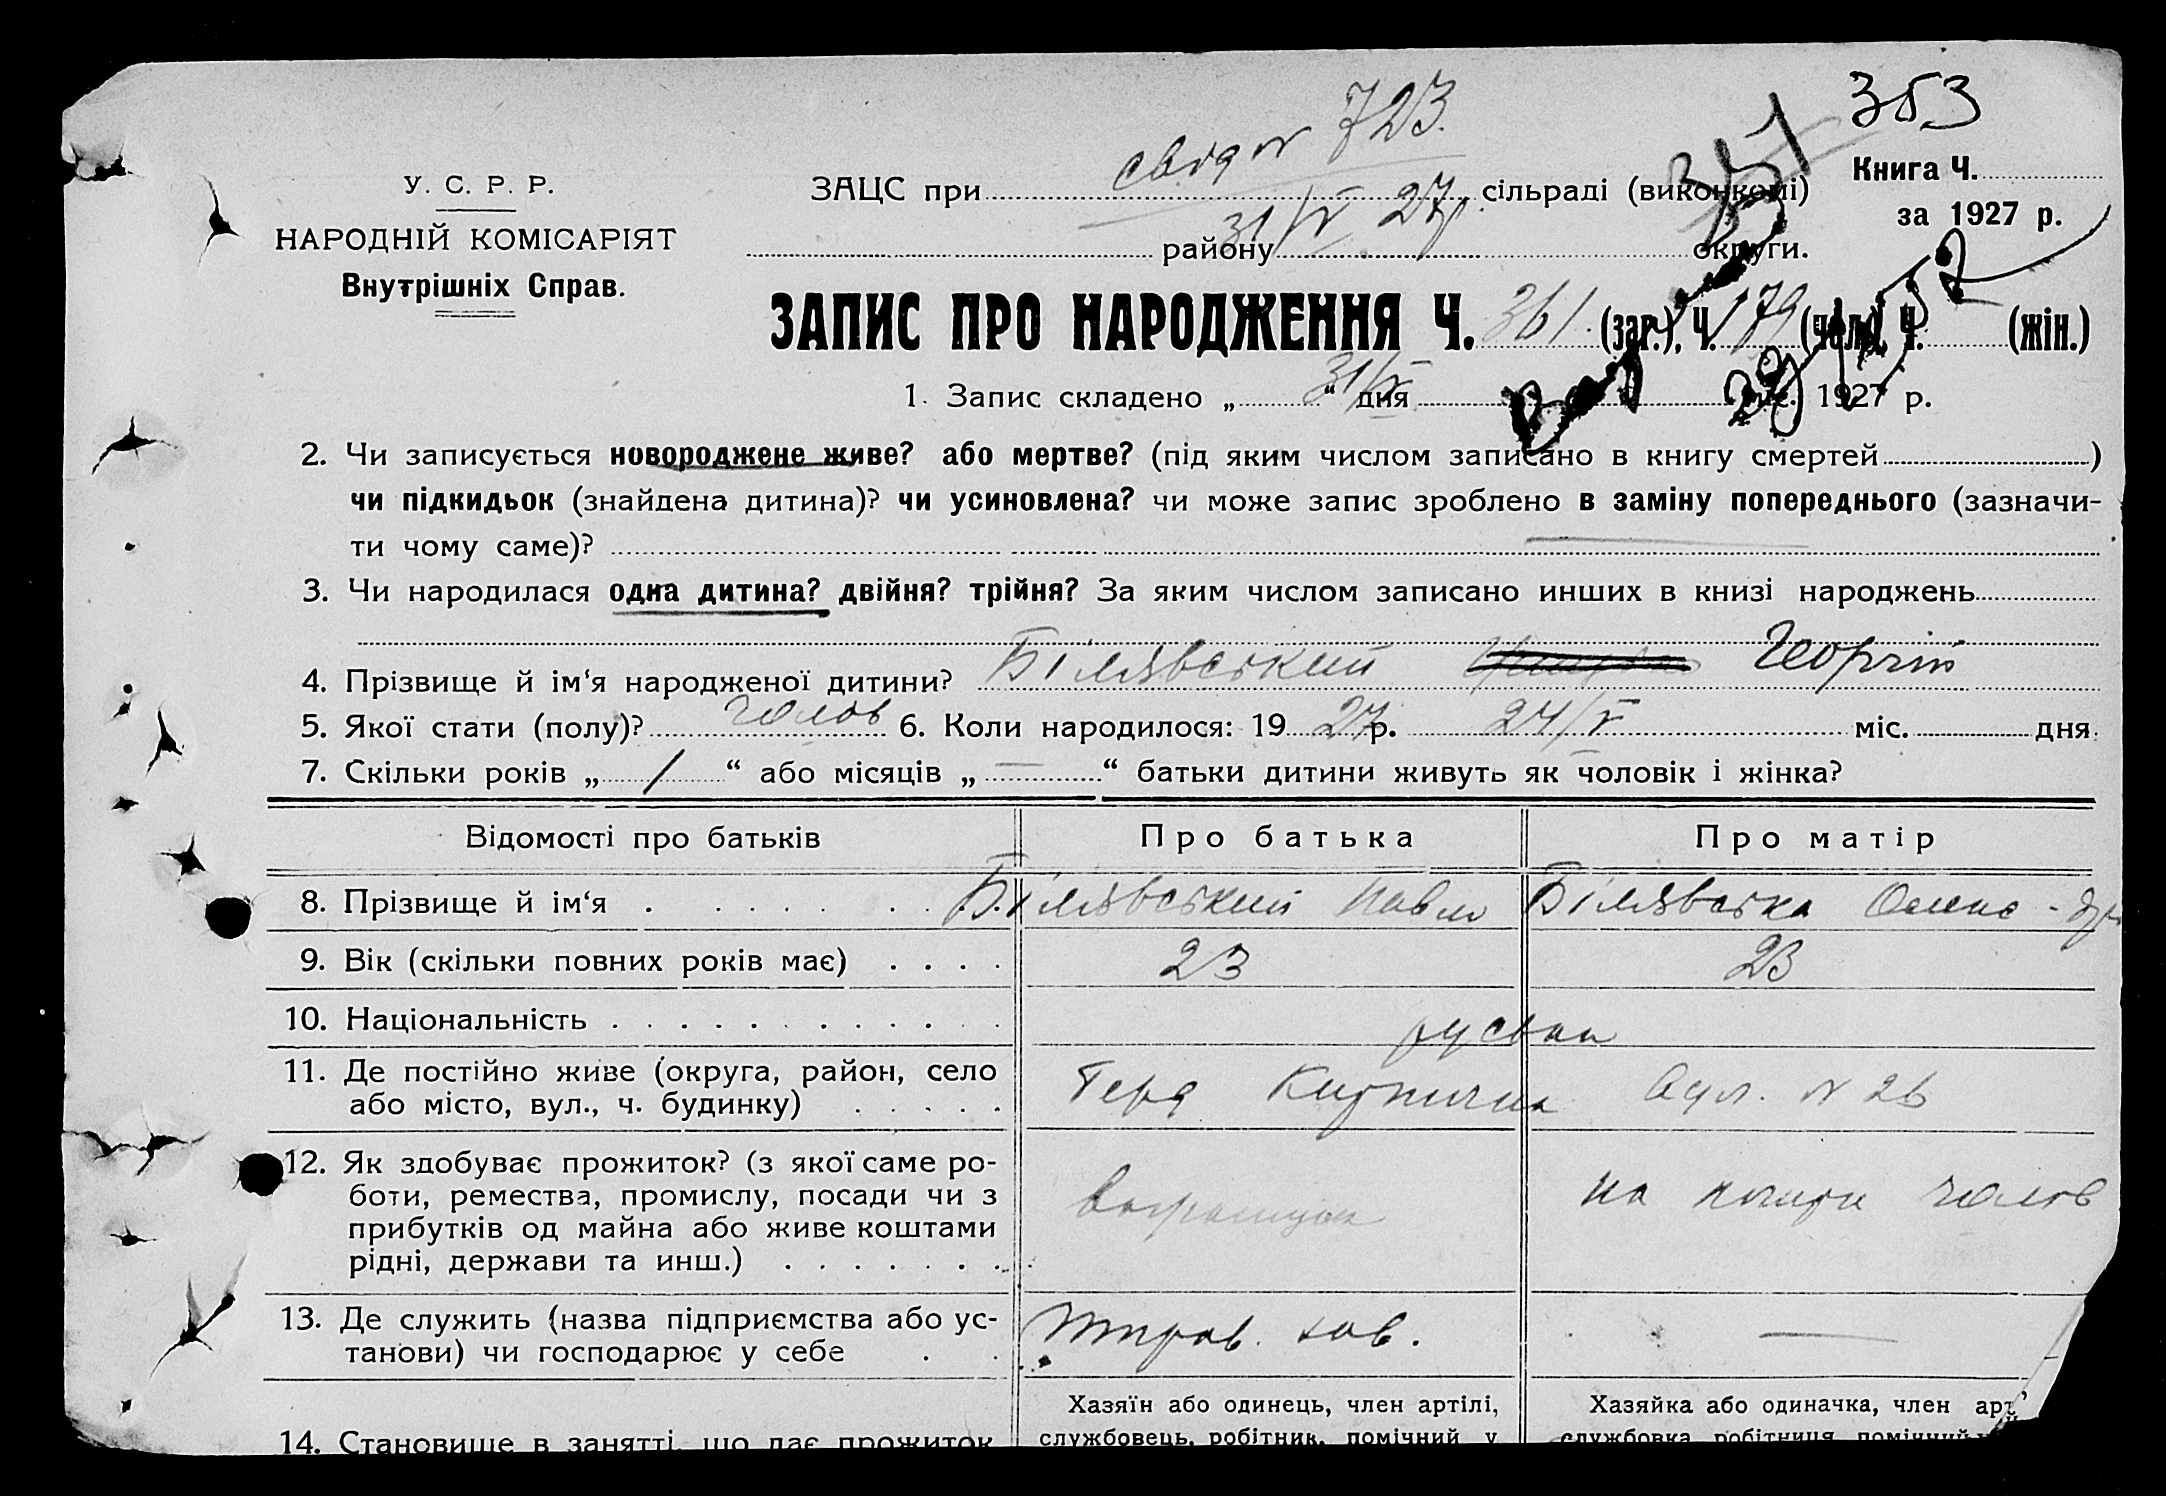 353
свід № 723.
351
У. С. Р. Р.
ЗАЦС при сільраді (виконкомі)
Книга Ч.
за 1927 р.
31/V 27 р.
НАРОДНІЙ КОМІСАРІЯТ
району округи.
Внутрішніх Справ.
ЗАПИС ПРО НАРОДЖЕННЯ Ч. 361 (заг.), Ч. 179 (чол.), Ч. (жін.)
1. Запис складено „ 31/V “ дня міс. 1927 р.
2. Чи записується новороджене живе? або мертве? (під яким числом записано в книгу смертей )
чи підкидьок (знайдена дитина)? чи усиновлена? чи може запис зроблено в заміну попереднього (зазначи-
ти чому саме)?
3. Чи народилася одна дитина? двійня? трійня? За яким числом записано инших в книзі народжень
4. Прізвище й ім‘я народженої дитини? Білявський Георгій
5. Якої стати (полу)? Чолов 6. Коли народилося: 19 27 р. 24/V міс. дня
7. Скільки років „ 1 “ або місяців „ — “ батьки дитини живуть як чоловік і жінка?
Відомості про батьків Про батька Про матір
8. Прізвище й ім‘я Білявський Павло Білявська
9. Вік (скільки повних років має) 23 23
10. Національність
11. Де постійно живе (округа, район, село
або місто, вул., ч. будинку) вул. № 26
12. Як здобуває прожиток? (з якої саме ро-
боти, ремества, промислу, посади чи з
прибутків од майна або живе коштами
рідні, держави та инш.) на чолов
13. Де служить (назва підприємства або ус-
танови) чи господарює у себе —
Хазяїн або одинець, член артілі, Хазяйка або одиначка, член арт
14. Становище в занятті, що дає прожиток службовець, робітник, помічний у службовка робітниця помічний